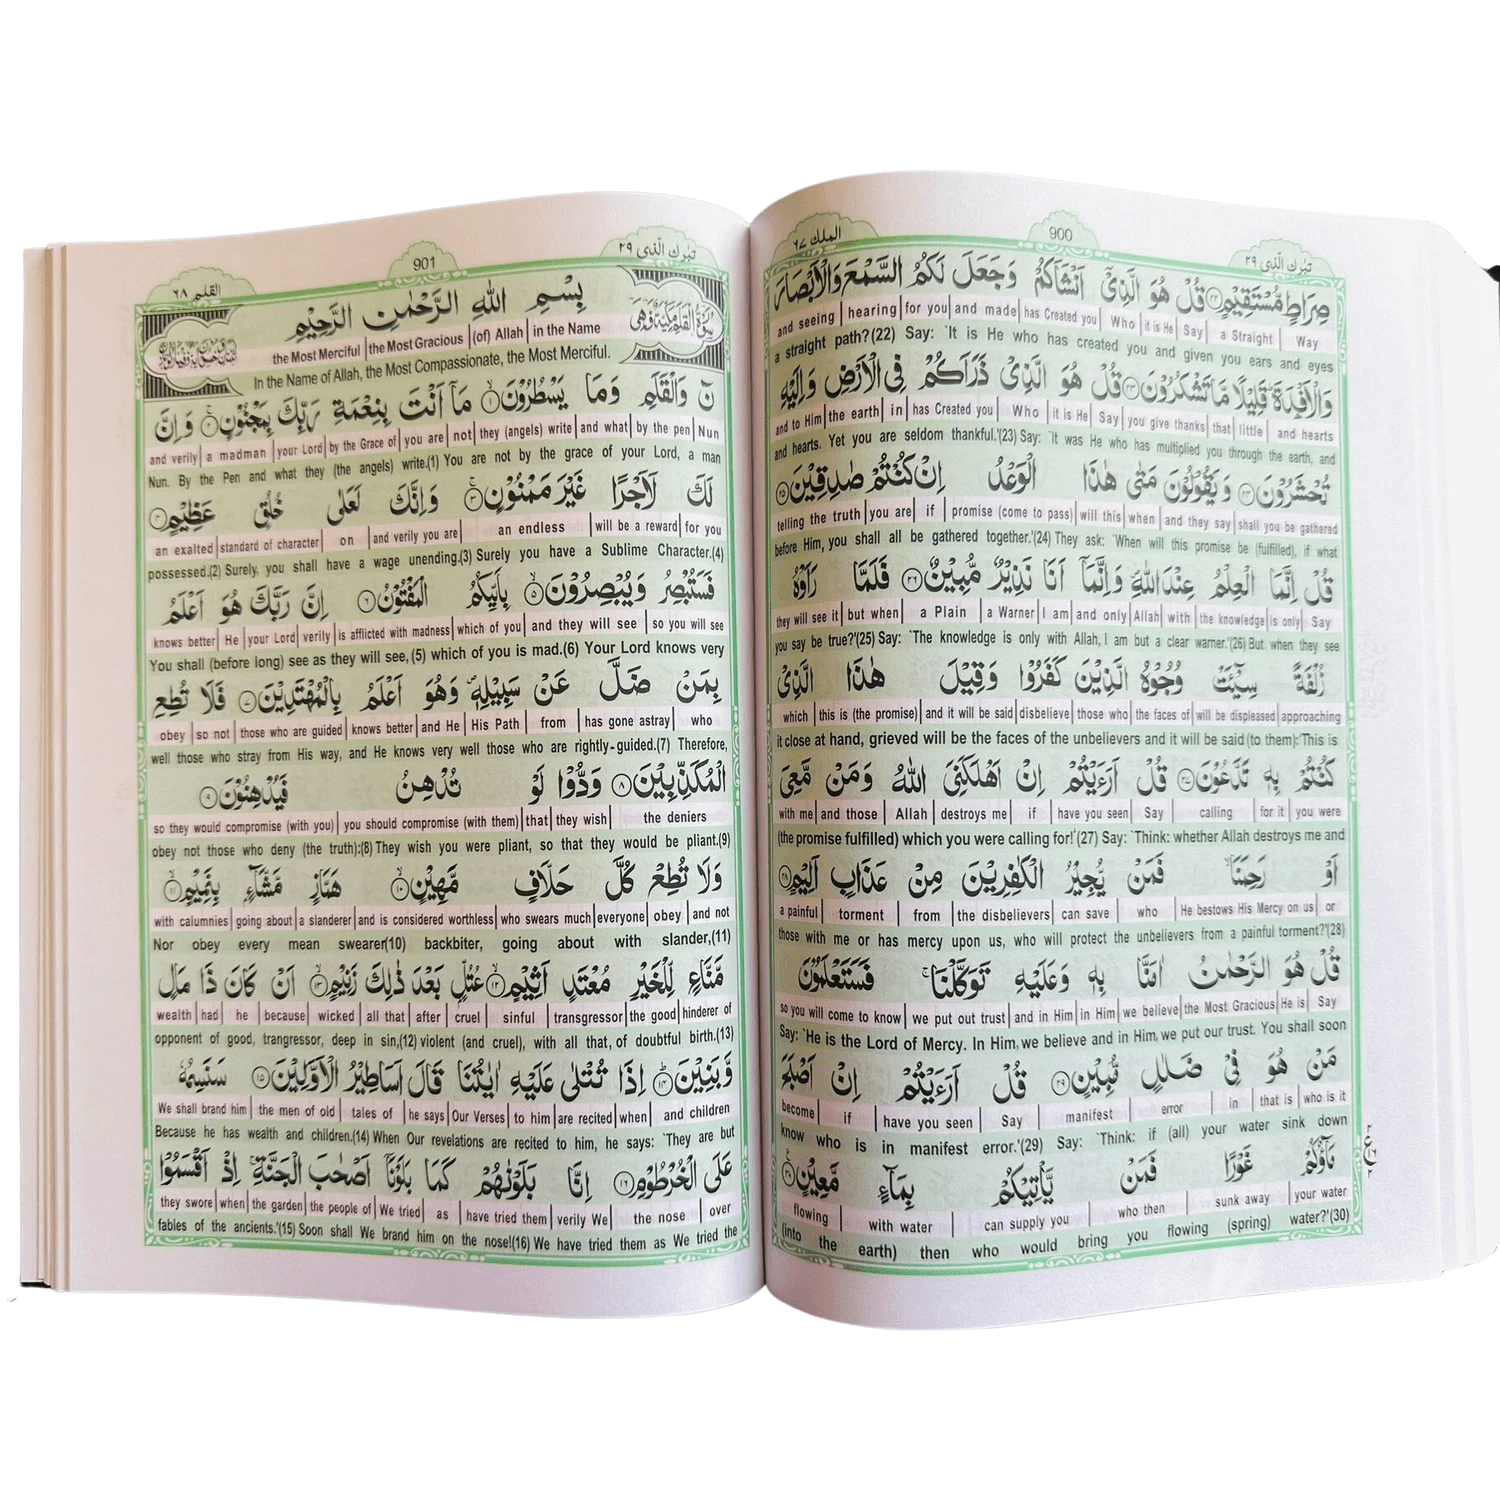 الملك ٦٧
900
تبٰرك الّذى ٢٩
صِرَاطٍ مُّسْتَقِيْمٍ ﴿٢٢﴾ قُلْ هُوَ الَّذِىْٓ اَنْشَاَكُمْ وَجَعَلَ لَكُمُ السَّمْعَ وَالْاَبْصَارَ
and seeing | hearing | for you | and made | has Created you | Who | it is He | Say | a Straight | Way
a straight path?(22) Say: `It is He who has created you and given you ears and eyes
وَالْاَفْـِٕدَةَ ؕ قَلِيْلًا مَّا تَشْكُرُوْنَ ﴿٢٣﴾ قُلْ هُوَ الَّذِىْ ذَرَاَكُمْ فِى الْاَرْضِ وَاِلَيْهِ
and to Him | the earth | in | has Created you | Who | it is He | Say | you give thanks | that | little | and hearts
and hearts. Yet you are seldom thankful.'(23) Say: `It was He who has multiplied you through the earth, and
تُحْشَرُوْنَ ﴿٢٤﴾ وَيَقُوْلُوْنَ مَتٰى هٰذَا الْوَعْدُ اِنْ كُنْتُمْ صٰدِقِيْنَ ﴿٢٥﴾
telling the truth | you are | if | promise (come to pass) | will this | when | and they say | shall you be gathered
before Him, you shall all be gathered together.'(24) They ask: `When will this promise be (fulfilled), if what
قُلْ اِنَّمَا الْعِلْمُ عِنْدَ اللّٰهِ وَاِنَّمَآ اَنَا نَذِيْرٌ مُّبِيْنٌ ﴿٢٦﴾ فَلَمَّا رَاَوْهُ
they will see it | but when | a Plain | a Warner | I am | and only | Allah | with | the knowledge | is only | Say
you say be true?'(25) Say: `The knowledge is only with Allah, I am but a clear warner.'(26) But when they see
زُلْفَةً سِيْٓـَٔتْ وُجُوْهُ الَّذِيْنَ كَفَرُوْا وَقِيْلَ هٰذَا الَّذِىْ
which | this is (the promise) | and it will be said | disbelieve | those who | the faces of | will be displeased | approaching
it close at hand, grieved will be the faces of the unbelievers and it will be said (to them):`This is
كُنْتُمْ بِهٖ تَدَّعُوْنَ ﴿٢٧﴾ قُلْ اَرَءَيْتُمْ اِنْ اَهْلَكَنِىَ اللّٰهُ وَمَنْ مَّعِىَ
with me | and those | Allah | destroys me | if | have you seen | Say | calling | for it | you were
(the promise fulfilled) which you were calling for!'(27) Say: `Think: whether Allah destroys me and
اَوْ رَحِمَنَا فَمَنْ يُّجِيْرُ الْكٰفِرِيْنَ مِنْ عَذَابٍ اَلِيْمٍ ﴿٢٨﴾
a painful | torment | from | the disbelievers | can save | who | He bestows His Mercy on us | or
those with me or has mercy upon us, who will protect the unbelievers from a painful torment?'(28)
قُلْ هُوَ الرَّحْمٰنُ اٰمَنَّا بِهٖ وَعَلَيْهِ تَوَكَّلْنَا ۚ فَسَتَعْلَمُوْنَ
so you will come to know | we put out trust | and in Him | in Him | we believe | the Most Gracious | He is | Say
Say: `He is the Lord of Mercy. In Him, we believe and in Him, we put our trust. You shall soon
مَنْ هُوَ فِىْ ضَلٰلٍ مُّبِيْنٍ ﴿٢٩﴾ قُلْ اَرَءَيْتُمْ اِنْ اَصْبَحَ
become | if | have you seen | Say | manifest | error | in | that is | who is it
know who is in manifest error.'(29) Say: `Think: if (all) your water sink down
مَآؤُكُمْ غَوْرًا فَمَنْ يَّاْتِيْكُمْ بِمَآءٍ مَّعِيْنٍ ﴿٣٠﴾
flowing | with water | can supply you | who then | sunk away | your water
(into the earth) then who would bring you flowing (spring) water?'(30)
القلم ٦٨
901
تبٰرك الّذى ٢٩
بِسْمِ اللّٰهِ الرَّحْمٰنِ الرَّحِيْمِ
the Most Merciful | the Most Gracious | (of) Allah | in the Name
In the Name of Allah, the Most Compassionate, the Most Merciful.
نٓ وَالْقَلَمِ وَمَا يَسْطُرُوْنَ ﴿١﴾ مَآ اَنْتَ بِنِعْمَةِ رَبِّكَ بِمَجْنُوْنٍ ﴿٢﴾ وَاِنَّ
and verily | a madman | your Lord | by the Grace of | you are | not | they (angels) write | and what | by the pen | Nun
Nun. By the Pen and what they (the angels) write.(1) You are not by the grace of your Lord, a man
لَكَ لَاَجْرًا غَيْرَ مَمْنُوْنٍ ﴿٣﴾ وَاِنَّكَ لَعَلٰى خُلُقٍ عَظِيْمٍ ﴿٤﴾
an exalted | standard of character | on | and verily you are | an endless | will be a reward | for you
possessed.(2) Surely, you shall have a wage unending.(3) Surely you have a Sublime Character.(4)
فَسَتُبْصِرُ وَيُبْصِرُوْنَ ﴿٥﴾ بِاَيِّكُمُ الْمَفْتُوْنُ ﴿٦﴾ اِنَّ رَبَّكَ هُوَ اَعْلَمُ
knows better | He | your Lord | verily | is afflicted with madness | which of you | and they will see | so you will see
You shall (before long) see as they will see, (5) which of you is mad.(6) Your Lord knows very
بِمَنْ ضَلَّ عَنْ سَبِيْلِهٖ وَهُوَ اَعْلَمُ بِالْمُهْتَدِيْنَ ﴿٧﴾ فَلَا تُطِعِ
obey | so not | those who are guided | knows better | and He | His Path | from | has gone astray | who
well those who stray from His way, and He knows very well those who are rightly-guided.(7) Therefore,
الْمُكَذِّبِيْنَ ﴿٨﴾ وَدُّوْا لَوْ تُدْهِنُ فَيُدْهِنُوْنَ ﴿٩﴾
so they would compromise (with you) | you should compromise (with them) | that | they wish | the deniers
obey not those who deny (the truth):(8) They wish you were pliant, so that they would be pliant.(9)
وَلَا تُطِعْ كُلَّ حَلَّافٍ مَّهِيْنٍ ﴿١٠﴾ هَمَّازٍ مَّشَّآءٍ بِنَمِيْمٍ ﴿١١﴾
with calumnies | going about | a slanderer | and is considered worthless | who swears much | everyone | obey | and not
Nor obey every mean swearer(10) backbiter, going about with slander,(11)
مَّنَّاعٍ لِّلْخَيْرِ مُعْتَدٍ اَثِيْمٍ ﴿١٢﴾ عُتُلٍّ بَعْدَ ذٰلِكَ زَنِيْمٍ ﴿١٣﴾ اَنْ كَانَ ذَا مَالٍ
wealth | had | he | because | wicked | all that | after | cruel | sinful | transgressor | the good | hinderer of
opponent of good, trangressor, deep in sin,(12) violent (and cruel), with all that, of doubtful birth.(13)
وَّبَنِيْنَ ﴿١٤﴾ اِذَا تُتْلٰى عَلَيْهِ اٰيٰتُنَا قَالَ اَسَاطِيْرُ الْاَوَّلِيْنَ ﴿١٥﴾ سَنَسِمُهٗ
We shall brand him | the men of old | tales of | he says | Our Verses | to him | are recited | when | and children
Because he has wealth and children.(14) When Our revelations are recited to him, he says: `They are but
عَلَى الْخُرْطُوْمِ ﴿١٦﴾ اِنَّا بَلَوْنٰهُمْ كَمَا بَلَوْنَآ اَصْحٰبَ الْجَنَّةِ ۚ اِذْ اَقْسَمُوْا
they swore | when | the garden | the people of | We tried | as | have tried them | verily We | the nose | over
fables of the ancients.'(15) Soon shall We brand him on the nose!(16) We have tried them as We tried the